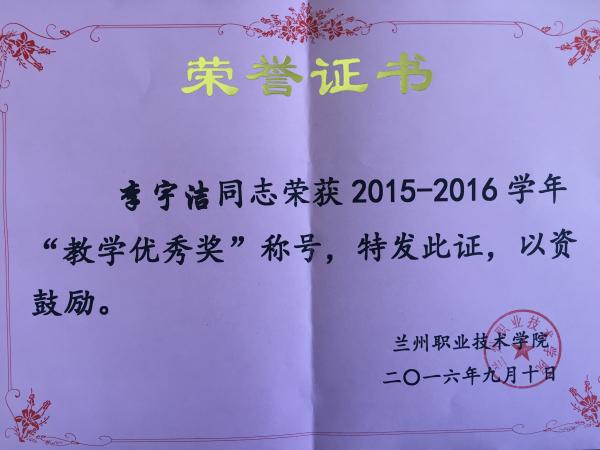 荣誉证书
李宇洁同志荣获 2015-2016 学年
“教学优秀奖”称号，特发此证，以资
鼓励。
兰州职业技术学院
二〇一六年九月十日
兰州职业技术学院